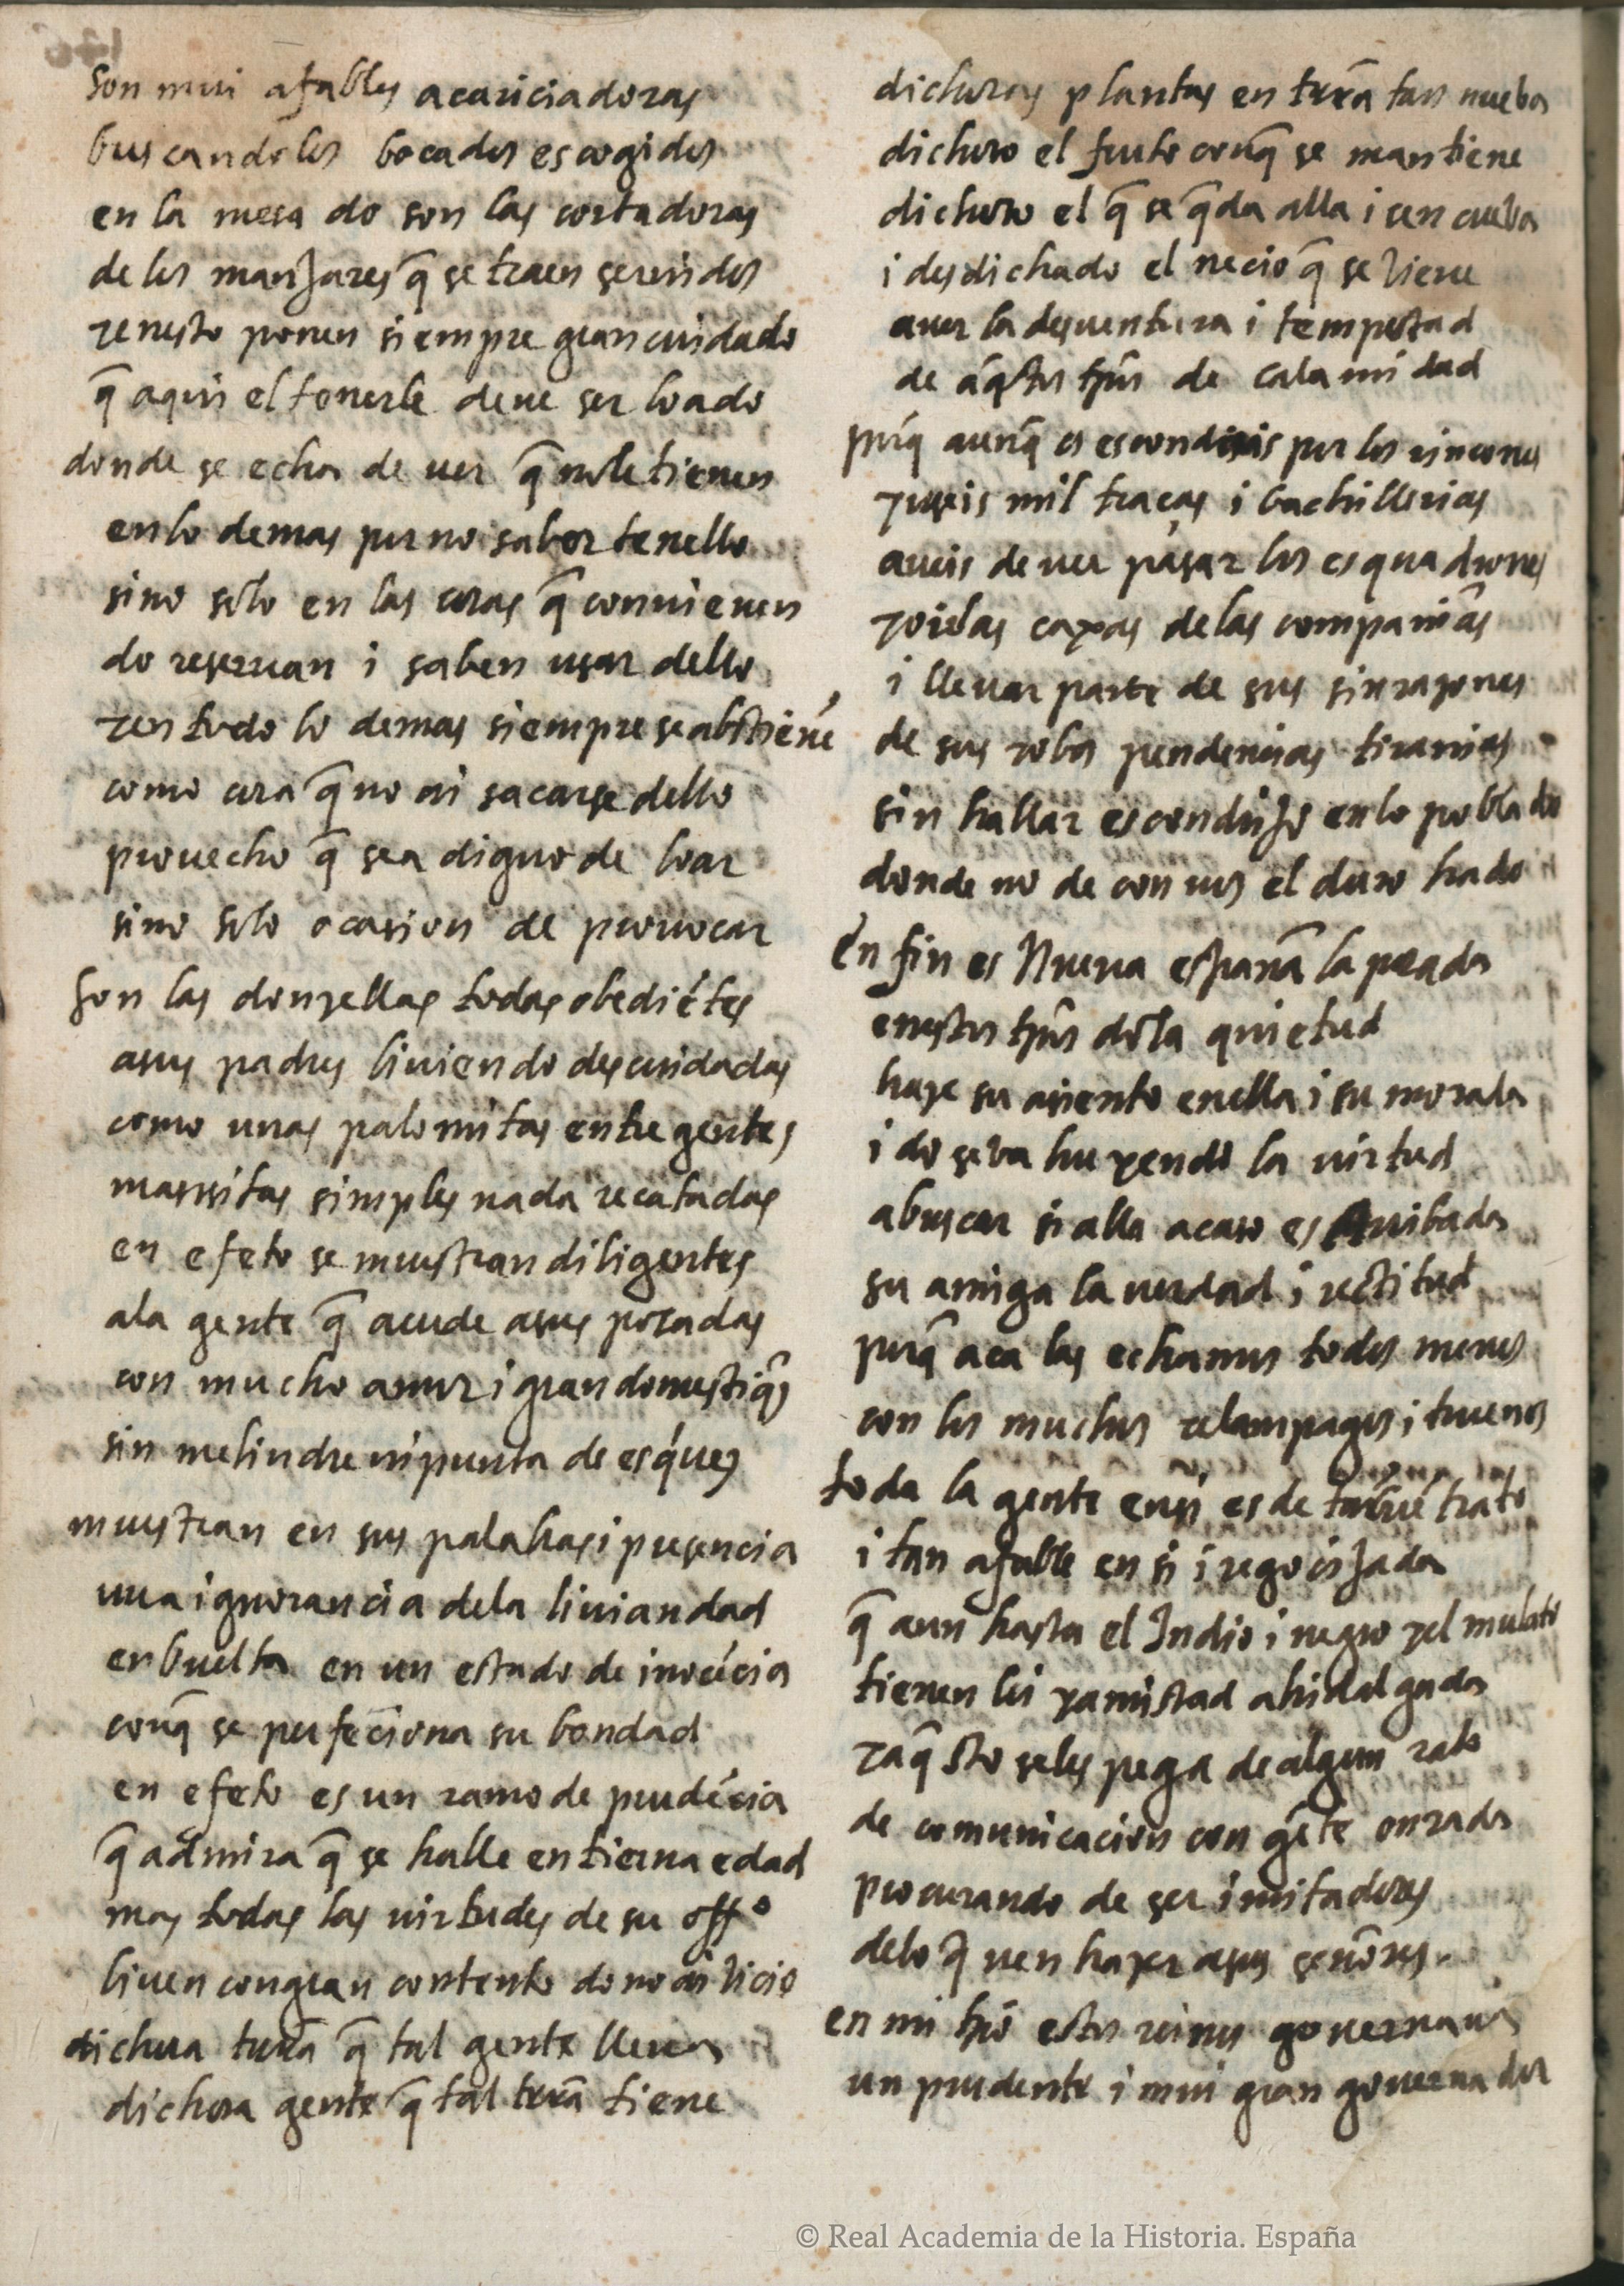 son mui afables acariciadoras
buscandoles bocados escogidos
en la mesa do son las cortadoras
de los manJares q̃ se traen seruidos
y enesto ponen siempre gran cuidado
q̃ aquin el tenerle deue ser loado
donde se echa de uer q̃ nole tienen
enlo demas por no saber tenello
sino solo en las cosas q̃ conuienen
do reseruan i saben usar dello
yen todo lo demas siempre se abstienẽ
como cosa q̃ no ai sacarse dello
prouecho q̃ sea digno de loar
sino solo ocasion de prouocar
son las donzellas todas obediẽtes
asus padres biuiendo descuidadas
como unas palomitas entre gentes
mansitas simples nada recatadas
en efeto se muestran diligentes
ala gente q̃ acude asus posadas
con mucho amor i gran domestiq̃z
sin melindre ni punta de esq́uez
muestran en sus palabras i presencia
una ignorancia dela liuiandad
enbuelta en un estado de inocẽcia
conq̃ se perfeciona su bondad
en efeto es un ramo de prudẽcia
q̃ admira q̃ se halle en tierna edad
mas todas las uirtudes de su offº
biuen congran contento do no ai bicio
dichosa terrã q̃ tal gente lleua
dichosa gente q̃ tal terrã tiene
dichosas plantas en terrã tan nueba
dichoso el fruto conq̃ se mantiene
dichoso el q̃ se q̃da alla i sen cueba
i desdichado el necio q̃ se biene
auer la desuentura i tempestad
de áq̃stos tpõs de calamidad
porq̃ aunq̃ os escondais por los rincones
yuseis mil traças i bachillerias
aueis de uer pasar los esquadrones
yoir las caxas de las companĩas
i lleuar parte de sus sinrazones
de sus robos pendencias tiranias
sin hallar escondriJo enlo poblado
donde no de con uos el duro hado
en fin es Nueua espanã la posada
enestos tpõs dõ la quietud
haze su asiento enella i su morada
i do se ba huyendo la uirtud
abuscar si alla acaso es arribada
su amiga la uerdad i rectitud
porq̃ aca las echamos todos menos
con los muchos relampagos i truenos
toda la gente ensi es de tan buẽ trato
i tan afable en si i regociJada
q̃ aun hasta el Indio i negro yel mulato
tienen lei yamistad ahidalgada
yaq̃sto seles pega de algun rato
de comunicacion con gẽte onrada
procurando de ser imitadores
delo q̃ uen hazer asus senõres.
en mi tpõ estos reinos gouernaua
un prudente i mui gran gouernador
© Real Academia de la Historia. España